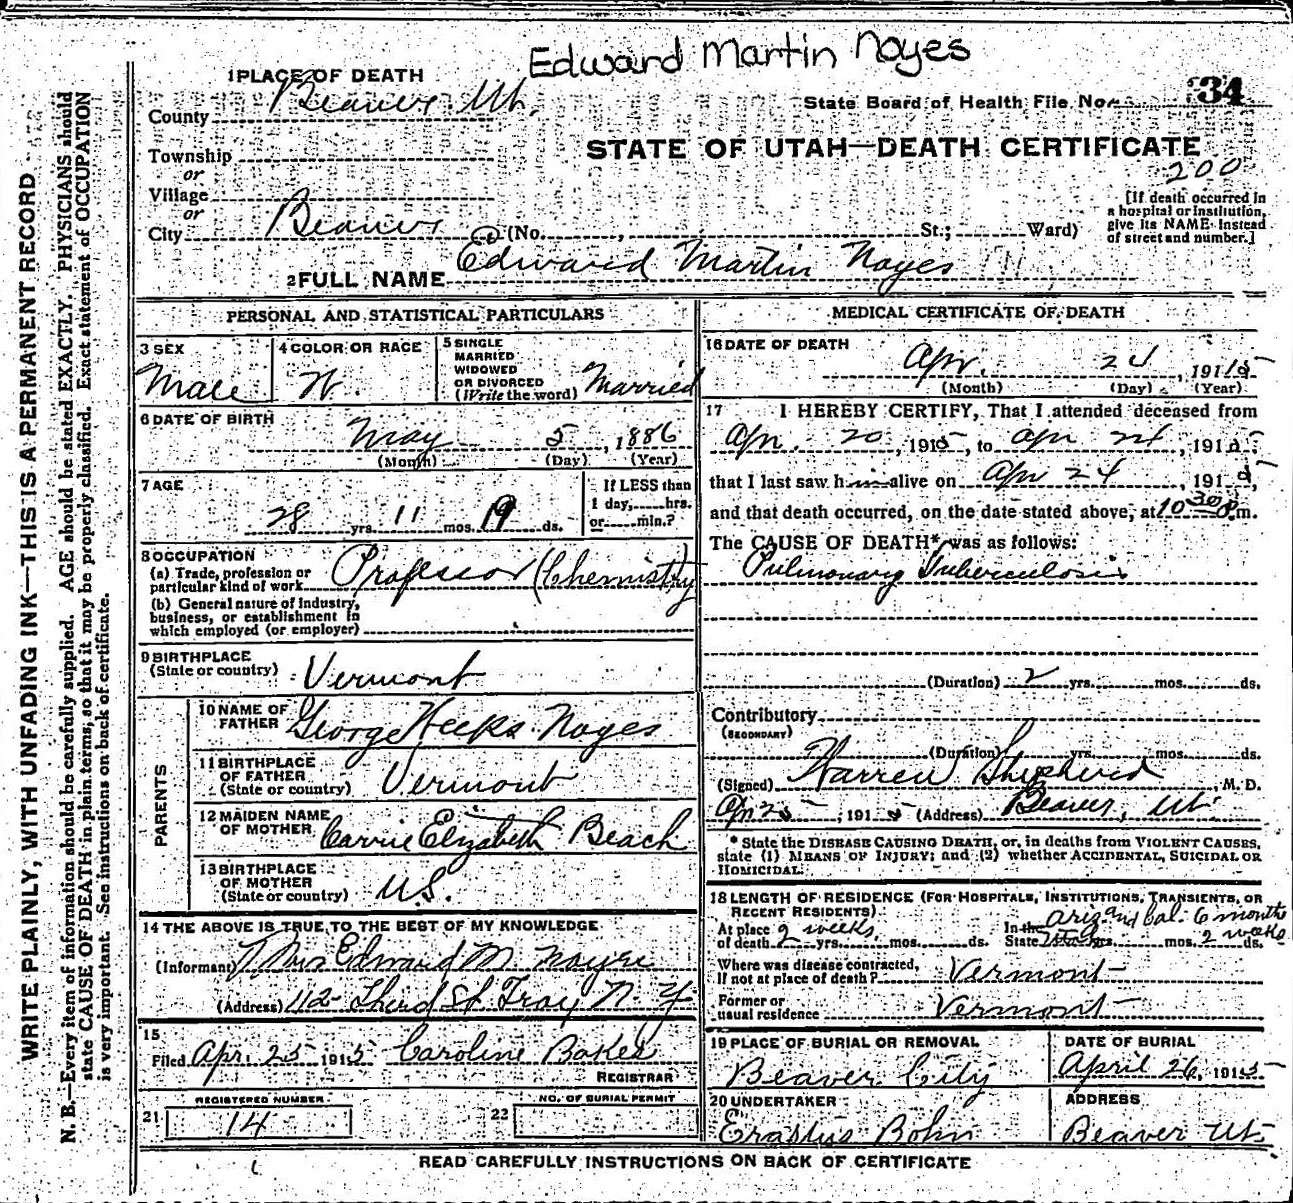 Edward Martin Noyes
1 PLACE OF DEATH
County Beaver Ut.
State Board of Health File No. 34
STATE OF UTAH—DEATH CERTIFICATE
200
Township
or
Village
or
City Beaver (No. , St.; Ward)
[If death occurred in
a hospital or institution,
give its NAME instead
of street and number.]
2 FULL NAME Edward Martin Noyes
PERSONAL AND STATISTICAL PARTICULARS
3 SEX
Male
4 COLOR OR RACE
W.
5 SINGLE
MARRIED
WIDOWED
OR DIVORCED
(Write the word) Married
6 DATE OF BIRTH
May 5, 1886
(Month) (Day) (Year)
7 AGE
28 yrs. 11 mos. 19 ds.
If LESS than
1 day, hrs.
or min.?
8 OCCUPATION
(a) Trade, profession or
particular kind of work Professor (Chemistry
(b) General nature of industry,
business, or establishment in
which employed (or employer)
9 BIRTHPLACE
(State or country) Vermont
PARENTS
10 NAME OF
FATHER George Weeks Noyes
11 BIRTHPLACE
OF FATHER
(State or country) Vermont
12 MAIDEN NAME
OF MOTHER Carrie Elizabeth Beach
13 BIRTHPLACE
OF MOTHER
(State or country) U.S.
14 THE ABOVE IS TRUE TO THE BEST OF MY KNOWLEDGE
(Informant) Mrs Edward M. Noyes
(Address) 112 Third St. Troy N.Y.
15
Filed Apr. 25 1915 Caroline Bakes
REGISTRAR
REGISTERED NUMBER
21 14
NO. OF BURIAL PERMIT
22
MEDICAL CERTIFICATE OF DEATH
16 DATE OF DEATH
Apr. 24, 1915
(Month) (Day) (Year)
17 I HEREBY CERTIFY, That I attended deceased from
Apr. 20, 1915, to Apr 24, 1915
that I last saw him alive on Apr 24, 1915,
and that death occurred, on the date stated above, at 10 30 P.m.
The CAUSE OF DEATH* was as follows:
Pulmonary Tuberculosis
(Duration) 2 yrs. mos. ds.
Contributory
(SECONDARY)
(Duration) yrs. mos. ds.
(Signed) Warren Shepherd, M. D.
Apr 25, 1915 (Address) Beaver, Ut.
* State the DISEASE CAUSING DEATH, or, in deaths from VIOLENT CAUSES,
state (1) MEANS OF INJURY; and (2) whether ACCIDENTAL, SUICIDAL OR
HOMICIDAL.
18 LENGTH OF RESIDENCE (FOR HOSPITALS, INSTITUTIONS, TRANSIENTS, OR
RECENT RESIDENTS). Ariz and Cal. 6 months
At place
of death 2 weeks yrs. mos. ds. In the
State Utah yrs. mos. 2 weeks ds.
Where was disease contracted,
If not at place of death? Vermont
Former or
usual residence Vermont
19 PLACE OF BURIAL OR REMOVAL
Beaver City
DATE OF BURIAL
April 26, 1915
20 UNDERTAKER
Erastus Bohn
ADDRESS
Beaver Ut
READ CAREFULLY INSTRUCTIONS ON BACK OF CERTIFICATE
WRITE PLAINLY, WITH UNFADING INK—THIS IS A PERMANENT RECORD
N. B.—Every item of information should be carefully supplied. AGE should be stated EXACTLY. PHYSICIANS should
state CAUSE OF DEATH in plain terms, so that it may be properly classified. Exact statement of OCCUPATION
is very important. See instructions on back of certificate.